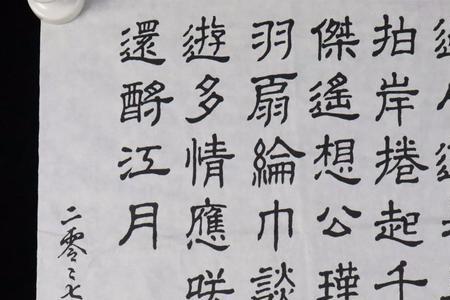 拍岸捲起千
傑遙想公瑾
羽扇綸巾談
遊多情應咲
還酹江月
二零〻七